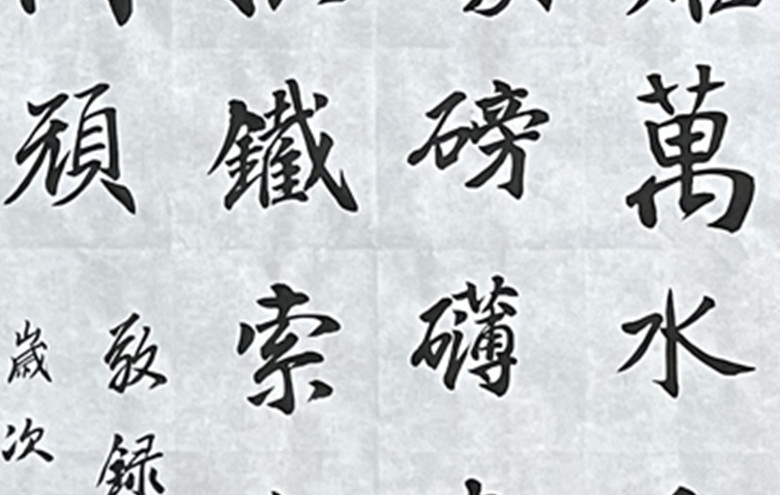 萬水
磅礴
鐵索
顏
敬録
歲次